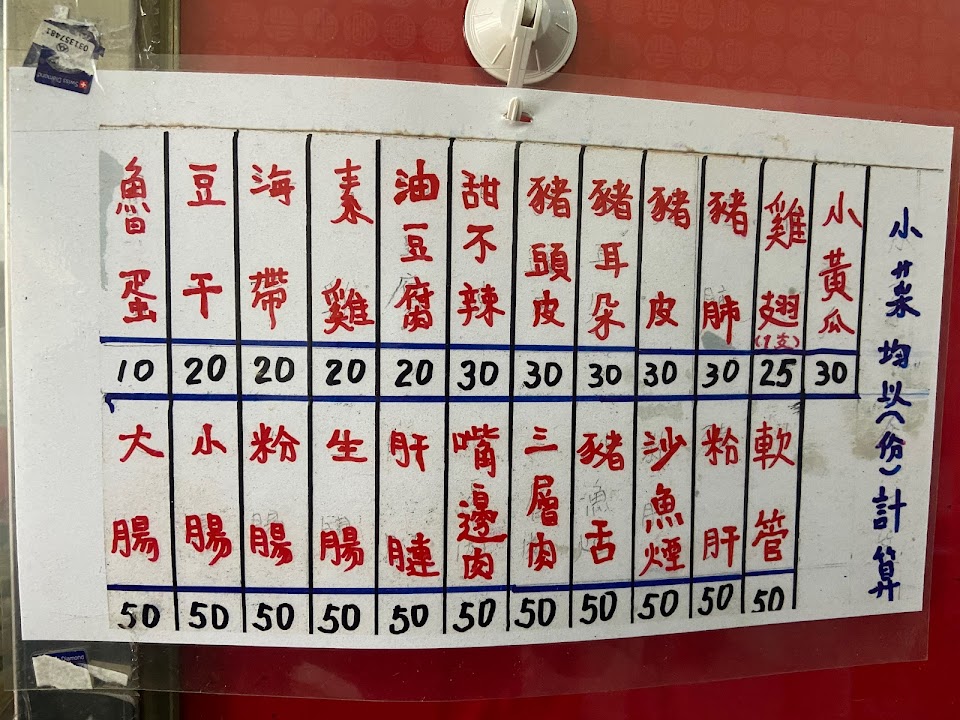 小菜均以(份)計算
小黃瓜 30
雞翅(1支) 25
豬肺 30
豬皮 30
豬耳朵 30
豬頭皮 30
甜不辣 30
油豆腐 20
素雞 20
海帶 20
豆干 20
魯蛋 10
軟管 50
粉肝 50
沙魚煙 50
豬舌 50
三層肉 50
嘴邊肉 50
肝腱 50
生腸 50
粉腸 50
小腸 50
大腸 50
031357481
Swiss Diamond
Diamond